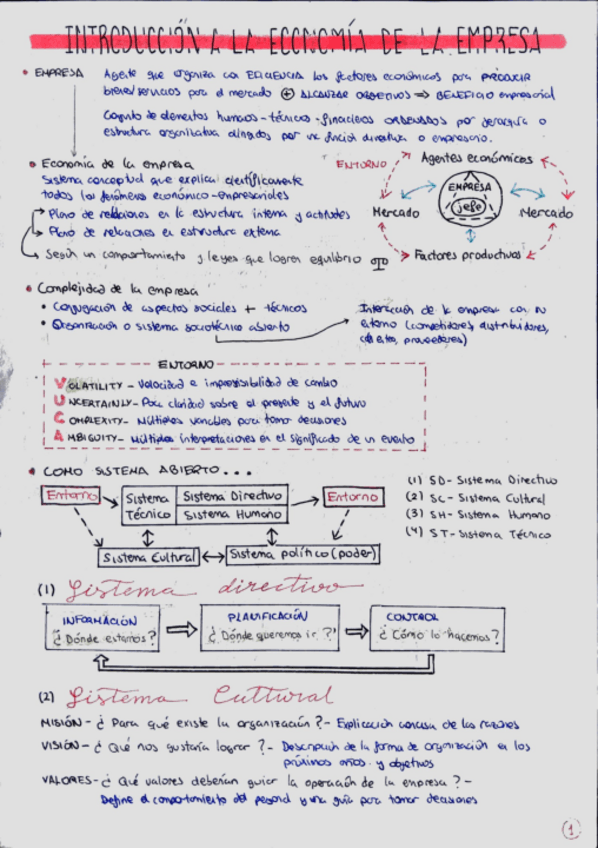 INTRODUCCIÓN A LA ECONOMÍA DE LA EMPRESA
• EMPRESA Agente que organiza con EFICIENCIA los factores económicos para PRODUCIR
bienes/servicios para el mercado ⊕ ALCANZAR OBJETIVOS ⇒ BENEFICIO empresarial
Conjunto de elementos humanos - técnicos - financieros ORDENADOS por jerarquía o
estructura organizativa dirigidos por una función directiva o empresario.
• Economía de la empresa
Sistema conceptual que explica científicamente
todos los fenómenos económico-empresariales
Plano de relaciones en la estructura interna y actitudes
Plano de relaciones en estructura externa
Según un comportamiento y leyes que logren equilibrio
ENTORNO
Agentes económicos
EMPRESA
jefe
Mercado
Mercado
Factores productivos
• Complejidad de la empresa
• Conjugación de aspectos sociales + técnicos
• Organización o sistema sociotécnico abierto
Interacción de la empresa con su
entorno (competidores, distribuidores,
clientes, proveedores)
ENTORNO
VOLATILITY - Velocidad e imprevisibilidad de cambio
UNCERTAINLY - Poca claridad sobre el presente y el futuro
COMPLEXITY - Múltiples variables para tomar decisiones
AMBIGUITY - Múltiples interpretaciones en el significado de un evento
• COMO SISTEMA ABIERTO...
Entorno
Sistema Técnico
Sistema Directivo
Sistema Humano
Entorno
Sistema Cultural
Sistema político (poder)
(1) SD - Sistema Directivo
(2) SC - Sistema Cultural
(3) SH - Sistema Humano
(4) ST - Sistema Técnico
(1) Sistema directivo
INFORMACIÓN
¿Dónde estamos?
PLANIFICACIÓN
¿Dónde queremos ir?
CONTROL
¿Cómo lo hacemos?
(2) Sistema Cultural
MISIÓN - ¿Para qué existe la organización? - Explicación concisa de las razones
VISIÓN - ¿Qué nos gustaría lograr? - Descripción de la forma de organización en los
próximos años y objetivos
VALORES - ¿Qué valores deberían guiar la operación de la empresa? -
Define el comportamiento del personal y una guía para tomar decisiones
1